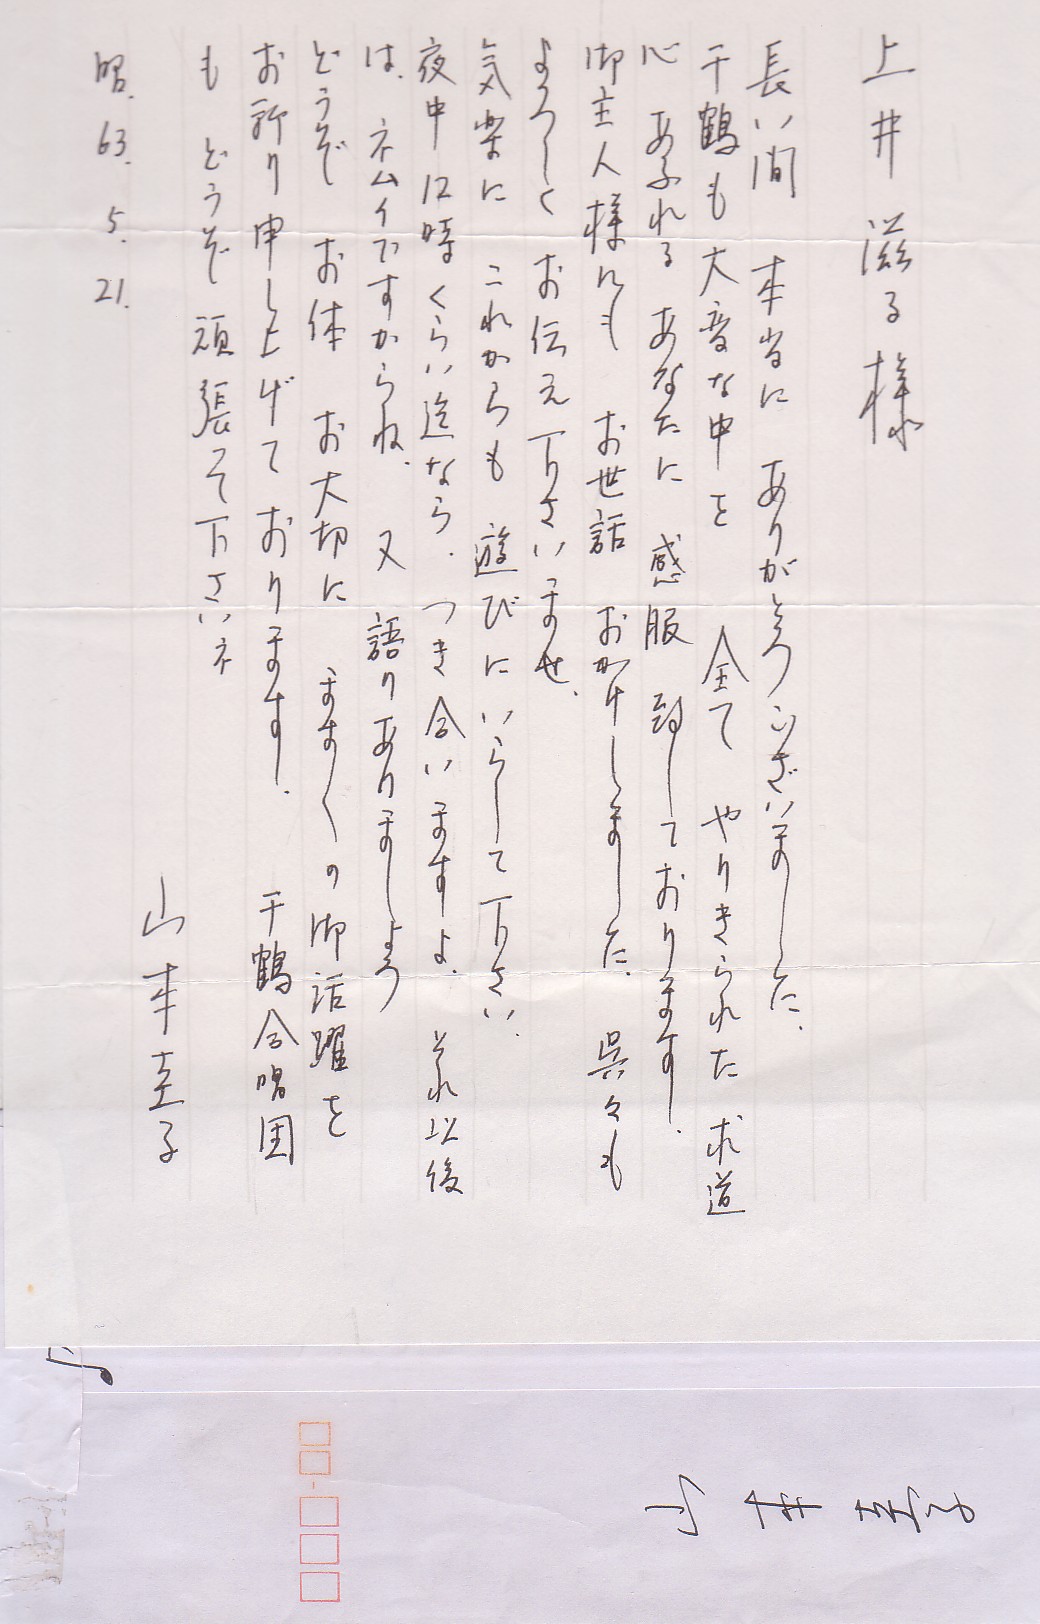 上井 滋る 様
長い間 本当に ありがとうございました、
千鶴も大変な中を 全て やりきられた 求道
心 あふれる あなたに 感服 致しております.
御主人様にも お世話 おかけしました、呉々も
よろしく お伝え下さいませ、
気楽に これからも 遊びに いらして下さい.
夜中12時くらい迄なら. つき合いますよ、それ以後
は、ネムイですからね. 又 語りありましょう
どうぞ お体 お大切に ますく の御活躍を
お祈り申し上げて おります. 千鶴合唱団
も どうぞ頑張って下さいネ
山本圭子
昭. 63. 5. 21.
山本圭子